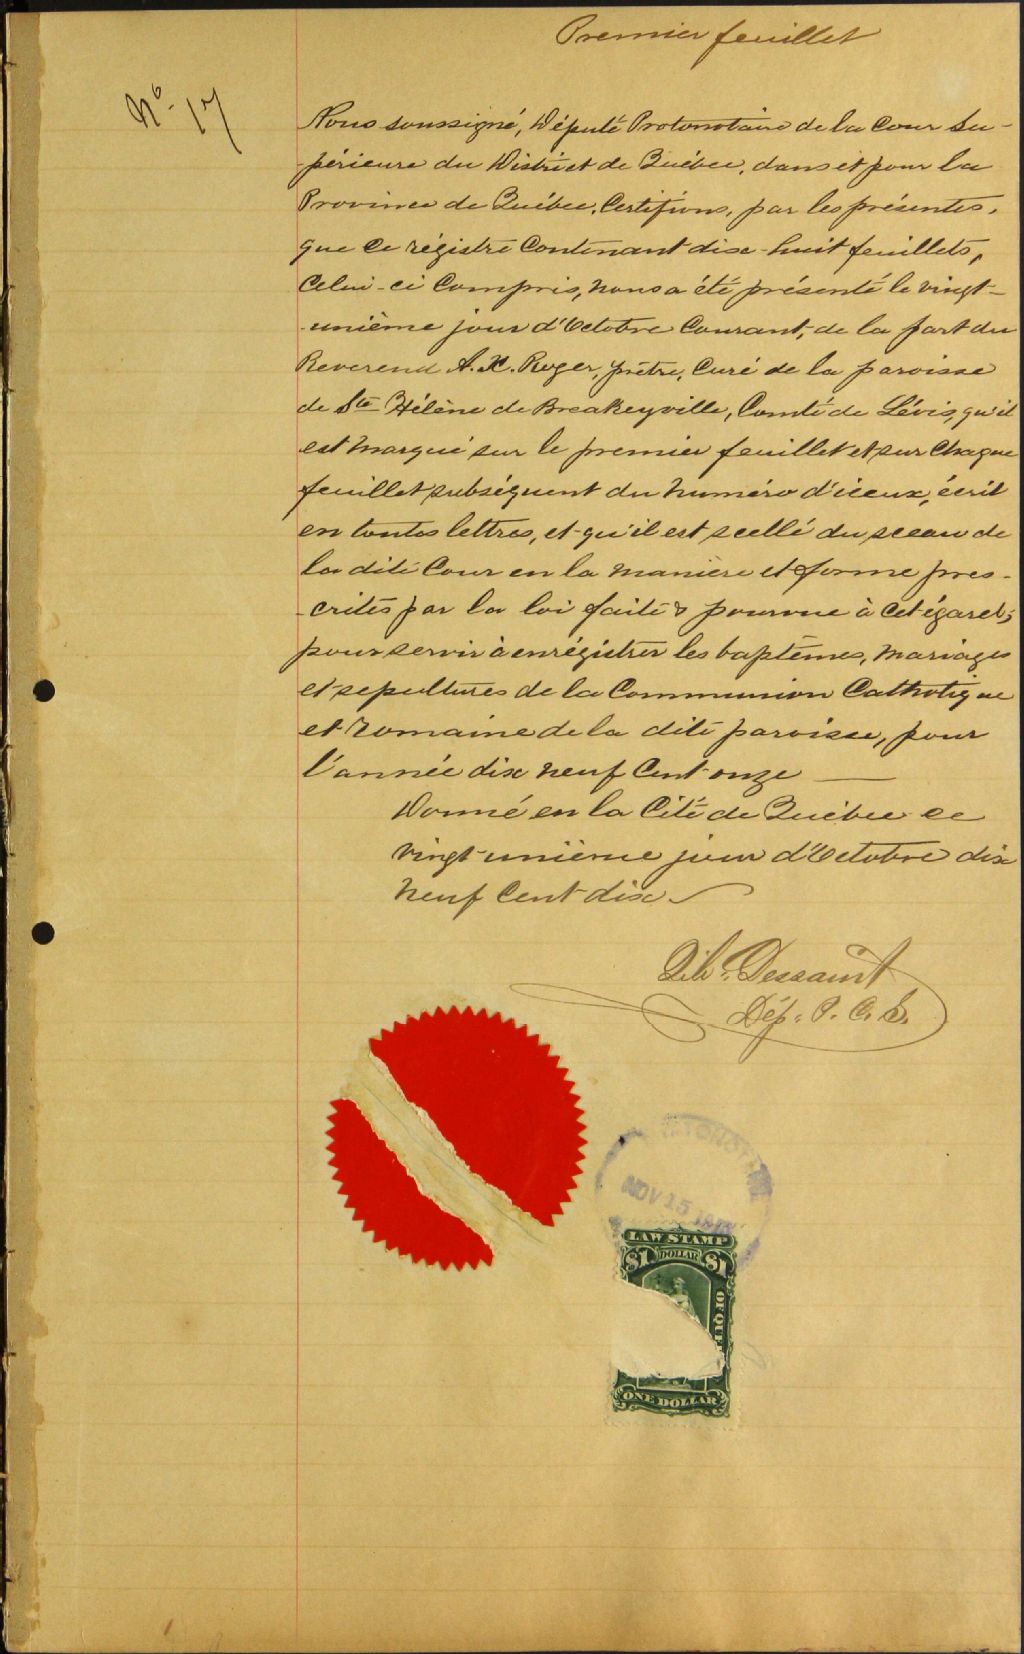 Premier feuillet
No. 17
Nous soussigné, Député Protonotaire de la Cour Su-
-périeure du District de Québec, dans et pour la
Province de Québec, Certifions, par les présentes,
que ce régistre contenant dix-huit feuillets,
celui-ci compris, nous a été présenté le vingt-
-unième jour d'Octobre Courant, de la part du
Reverend A. X. Roger, prêtre, Curé de la paroisse
de Ste Hélène de Breakeyville, Comté de Lévis, qu'il
est marqué sur le premier feuillet et sur chaque
feuillet subséquent du numéro d'iceux, écrit
en toutes lettres, et qu'il est scellé du sceau de
la dite Cour en la manière et forme pres-
-crites par la loi faite & pourvue à cet égard,
pour servir à enrégistrer les baptêmes, mariages
et sepultures de la Communion Catholique
et romaine de la dite paroisse, pour
l'année dix neuf cent onze
Donné en la Cité de Québec ce
vingt-unième jour d'Octobre dix
neuf cent dix
Dessaint
Dép. P. C. S.
NOV 15
LAW STAMP
$1 DOLLAR $1
OF QUE
ONE DOLLAR